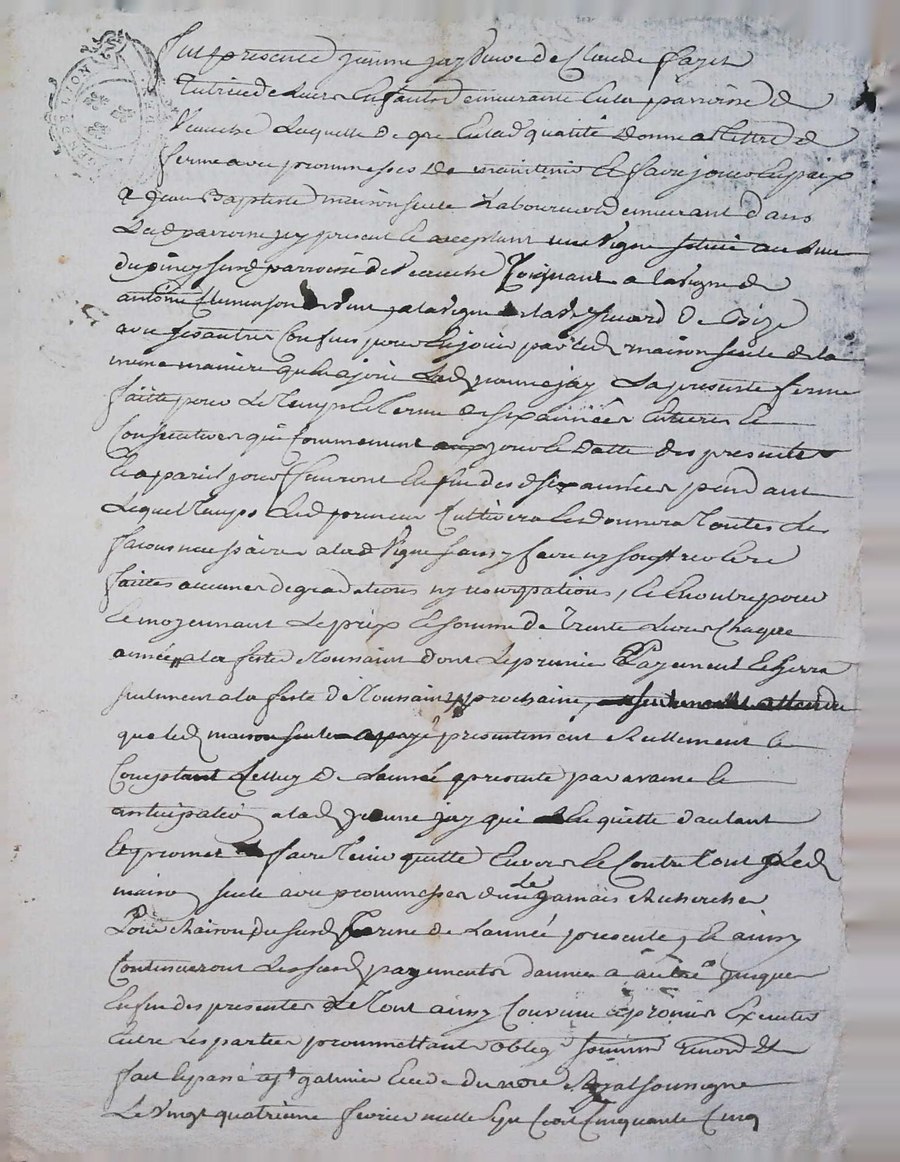 GEN DE LION
fut presente jeanne jay veuve de Claude fayet
tutrice de leurs enfants demeurante en la parroisse de
Veauche laquelle de gré en lad qualité donne a tiltre de
ferme avec prommesses de maintenir et faire jouir en paix
a jean Baptiste maisonseule laboureur demeurant dans
lad parroisse icy present et acceptant une vigne située au
du piney susd parroisse de Veauche joignant a la vigne de
antoine de a la vigne de
avec ses autres confins pour en jouir par led maisonseule de la
meme maniere qu'en a joui lad jeanne jay la presente ferme
faitte pour le temps et terme de six années entieres et
consecutives qui commencent jour et datte des presentes
et a pareil jour fauront et fin desd six années pendant
lequel temps led preneur cultivera et donnera toutes les
façons necessaires a lad vigne sans y faire ny souffrir etre
faittes aucunes degradations ny usurpations, et en outre pour
et moyennant le prix et somme de trente livres chaque
année a la feste Toussaint dont le premier payement se fera
seulement a la feste de Toussaint prochaine, attendu
que led maisonseule a payé presentement reellement et
comptant celluy de l'année presente par avance et
anticipation a lad jeanne jay qui en quitte d'autant
et promet faire tenir quitte envers et contre tout led
maisonseule avec prommesses de ne le jamais rechercher
pour raison du susd terme de l'année presente, et ainsy
continueront lesd payements d'année a autre jusques
en fin des presentes le tout ainsy convenu et promis executer
entre les parties promettants oblig soumis renonc et
fait et passé a st galmier etude du nore Royal soussigné
le vingt quatrieme fevrier mille sept cent cinquante cinq